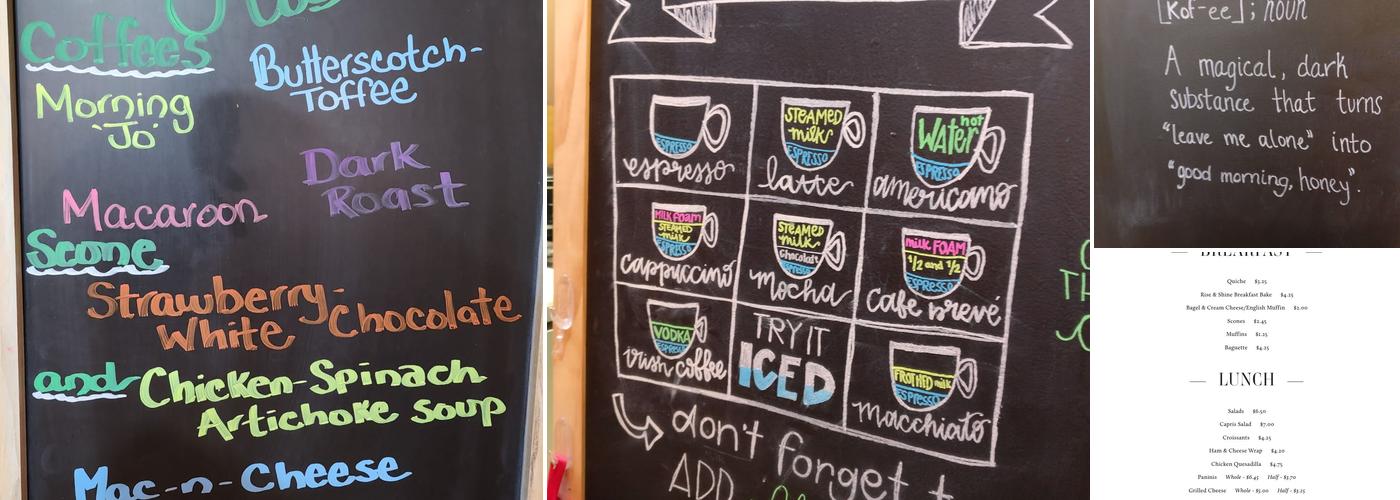 Coffees
Butterscotch-
Toffee
Morning
'Jo'
Dark
Roast
Macaroon
Scone
Strawberry-
White Chocolate
and Chicken-Spinach
Artichoke soup
Mac-n-Cheese
ESPRESSO
espresso
STEAMED
milk
ESPRESSO
latte
hot
Water
ESPRESSO
americano
MILK FOAM
STEAMED
milk
ESPRESSO
cappuccino
STEAMED
milk
Chocolate
ESPRESSO
mocha
milk FOAM
1/2 and 1/2
ESPRESSO
cafe brevé
VODKA
ESPRESSO
irish coffee
TRY IT
ICED
FROTHED milk
ESPRESSO
macchiato
don't forget
ADD
[kof-ee]; noun
A magical, dark
substance that turns
"leave me alone" into
"good morning, honey".
BREAKFAST
Quiche $3.25
Rise & Shine Breakfast Bake $4.25
Bagel & Cream Cheese/English Muffin $2.00
Scones $2.45
Muffins $1.25
Baguette $4.25
LUNCH
Salads $6.50
Capris Salad $7.00
Croissants $4.25
Ham & Cheese Wrap $4.20
Chicken Quesadilla $4.75
Paninis Whole - $6.45 Half - $3.70
Grilled Cheese Whole - $5.00 Half - $3.25